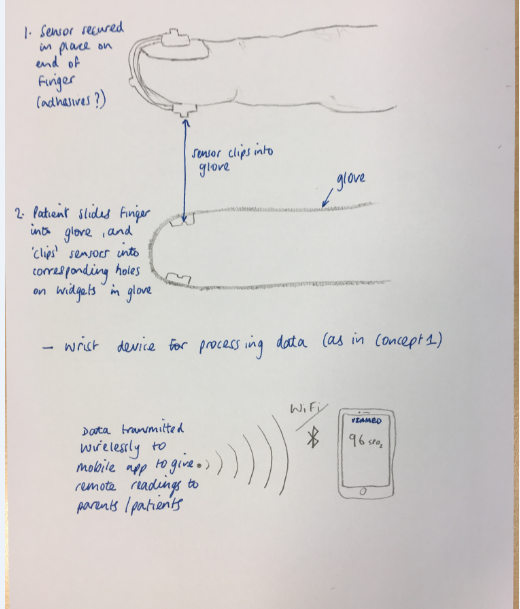 1. Sensor secured
in place on
end of
Finger
(adhesives?)
sensor clips into
glove
glove
2. Patient slides finger
into glove, and
'clips' sensors into
corresponding holes
on widgets in glove
- wrist device for processing data (as in Concept 1)
WiFi
Data transmitted
wirelessly to
mobile app to give
remote readings to
parents/patients
VIAMED
96 SPO2